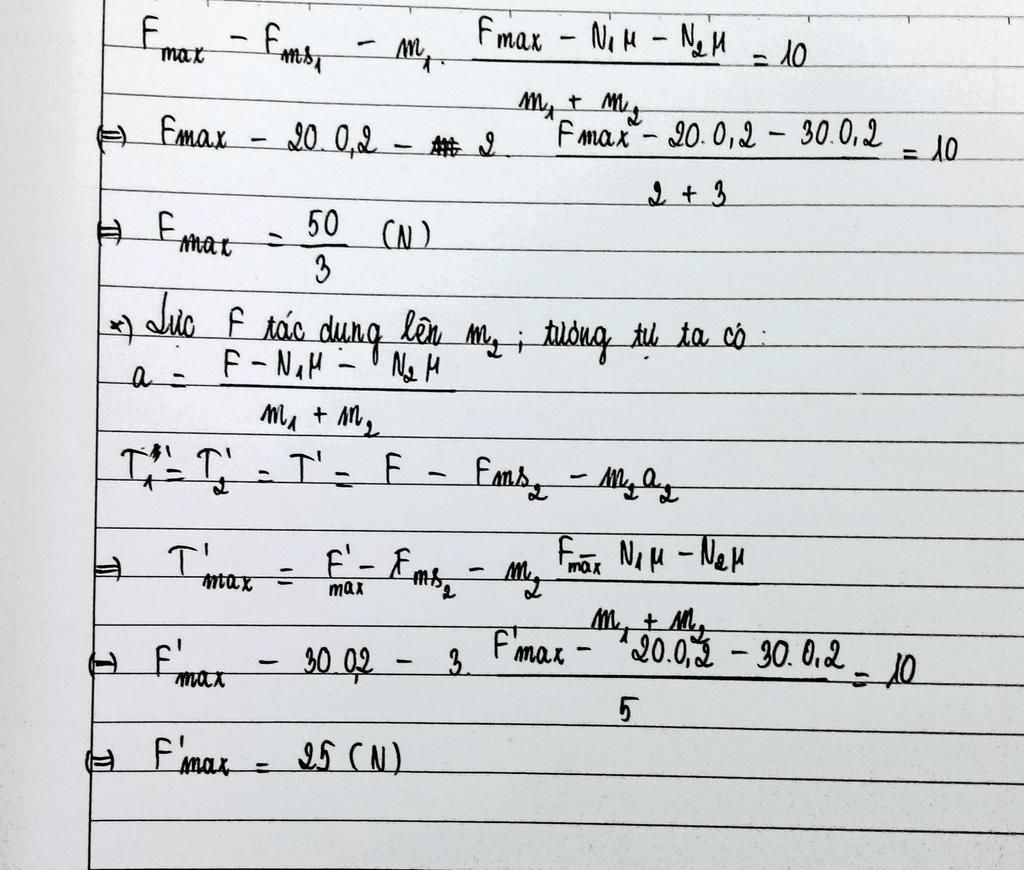 F_max − F_ms₁ − m₁. (F_max − N₁μ − N₂μ)/(m₁ + m₂) = 10
⇔ F_max − 20.0,2 − 2. (F_max − 20.0,2 − 30.0,2)/(2 + 3) = 10
⇔ F_max = 50/3 (N)
*) Lực F tác dụng lên m₂ ; tương tự ta có :
a = (F − N₁μ − N₂μ)/(m₁ + m₂)
T₁' = T₂' = T' = F − F_ms₂ − m₂a₂
⇒ T'_max = F'_max − F_ms₂ − m₂ (F_max − N₁μ − N₂μ)/(m₁ + m₂)
⇔ F'_max − 30.0,2 − 3. (F'_max − 20.0,2 − 30.0,2)/5 = 10
⇔ F'_max = 25 (N)